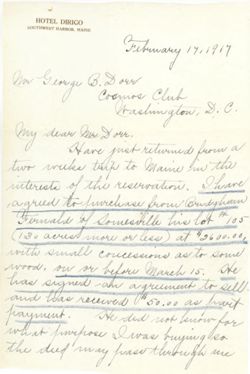 HOTEL DIRIGO
SOUTHWEST HARBOR, MAINE
February 17, 1917
Mr George B. Dorr
Cosmos Club
Washington, D. C.
My dear Mr Dorr.
Have just returned from a
two weeks trip to Maine in the
interests of the reservation. I have
agreed to purchase from Brudgham
Fernald of Somesville his lot # 105
(130 acres more or less) at $2600.00,
with small concessions as to some
wood, on or before March 15. He
has signed an agreement to sell
and has received $50.00 as part
payment. He did not know for
what purpose I was buying so
the deed may pass through me